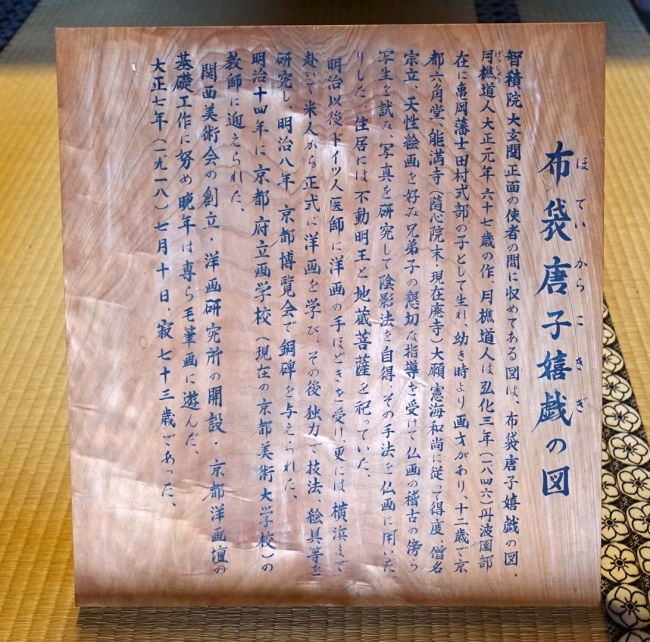 布袋唐子嬉戯の図
ほていからこきぎ
智積院大玄関正面の使者の間に収めてある図は、布袋唐子嬉戯の図、
月樵道人大正元年六十七歳の作、月樵道人は弘化三年(一八四六)丹波国部
げっしょう
在に亀岡藩士田村式部の子として生れ、幼き時より画才があり、十二歳で京
都六角堂・能満寺(随心院末・現在廃寺)大願・憲海和尚に従って得度、僧名
宗立、天性絵画を好み兄弟子の懇切な指導を受けて仏画の稽古の傍ら
写生を試み、写真を研究して陰影法を自得、その手法を仏画に用いた
りした、住居には不動明王と地蔵菩薩を祀っていた、
明治以後ドイツ人医師に洋画の手ほどきを受け、更には横浜まで
赴いて米人から正式に洋画を学び、その後独力で技法、絵具等を
研究し、明治八年、京都博覧会で銅碑を与えられた、
明治十四年に京都府立画学校(現在の京都美術大学校)の
教師に迎えられた、
関西美術会の創立・洋画研究所の開設・京都洋画壇の
基礎工作に努め晩年は専ら毛筆画に遊んだ、
大正七年(一九一八)七月十日、寂七十三歳であった、